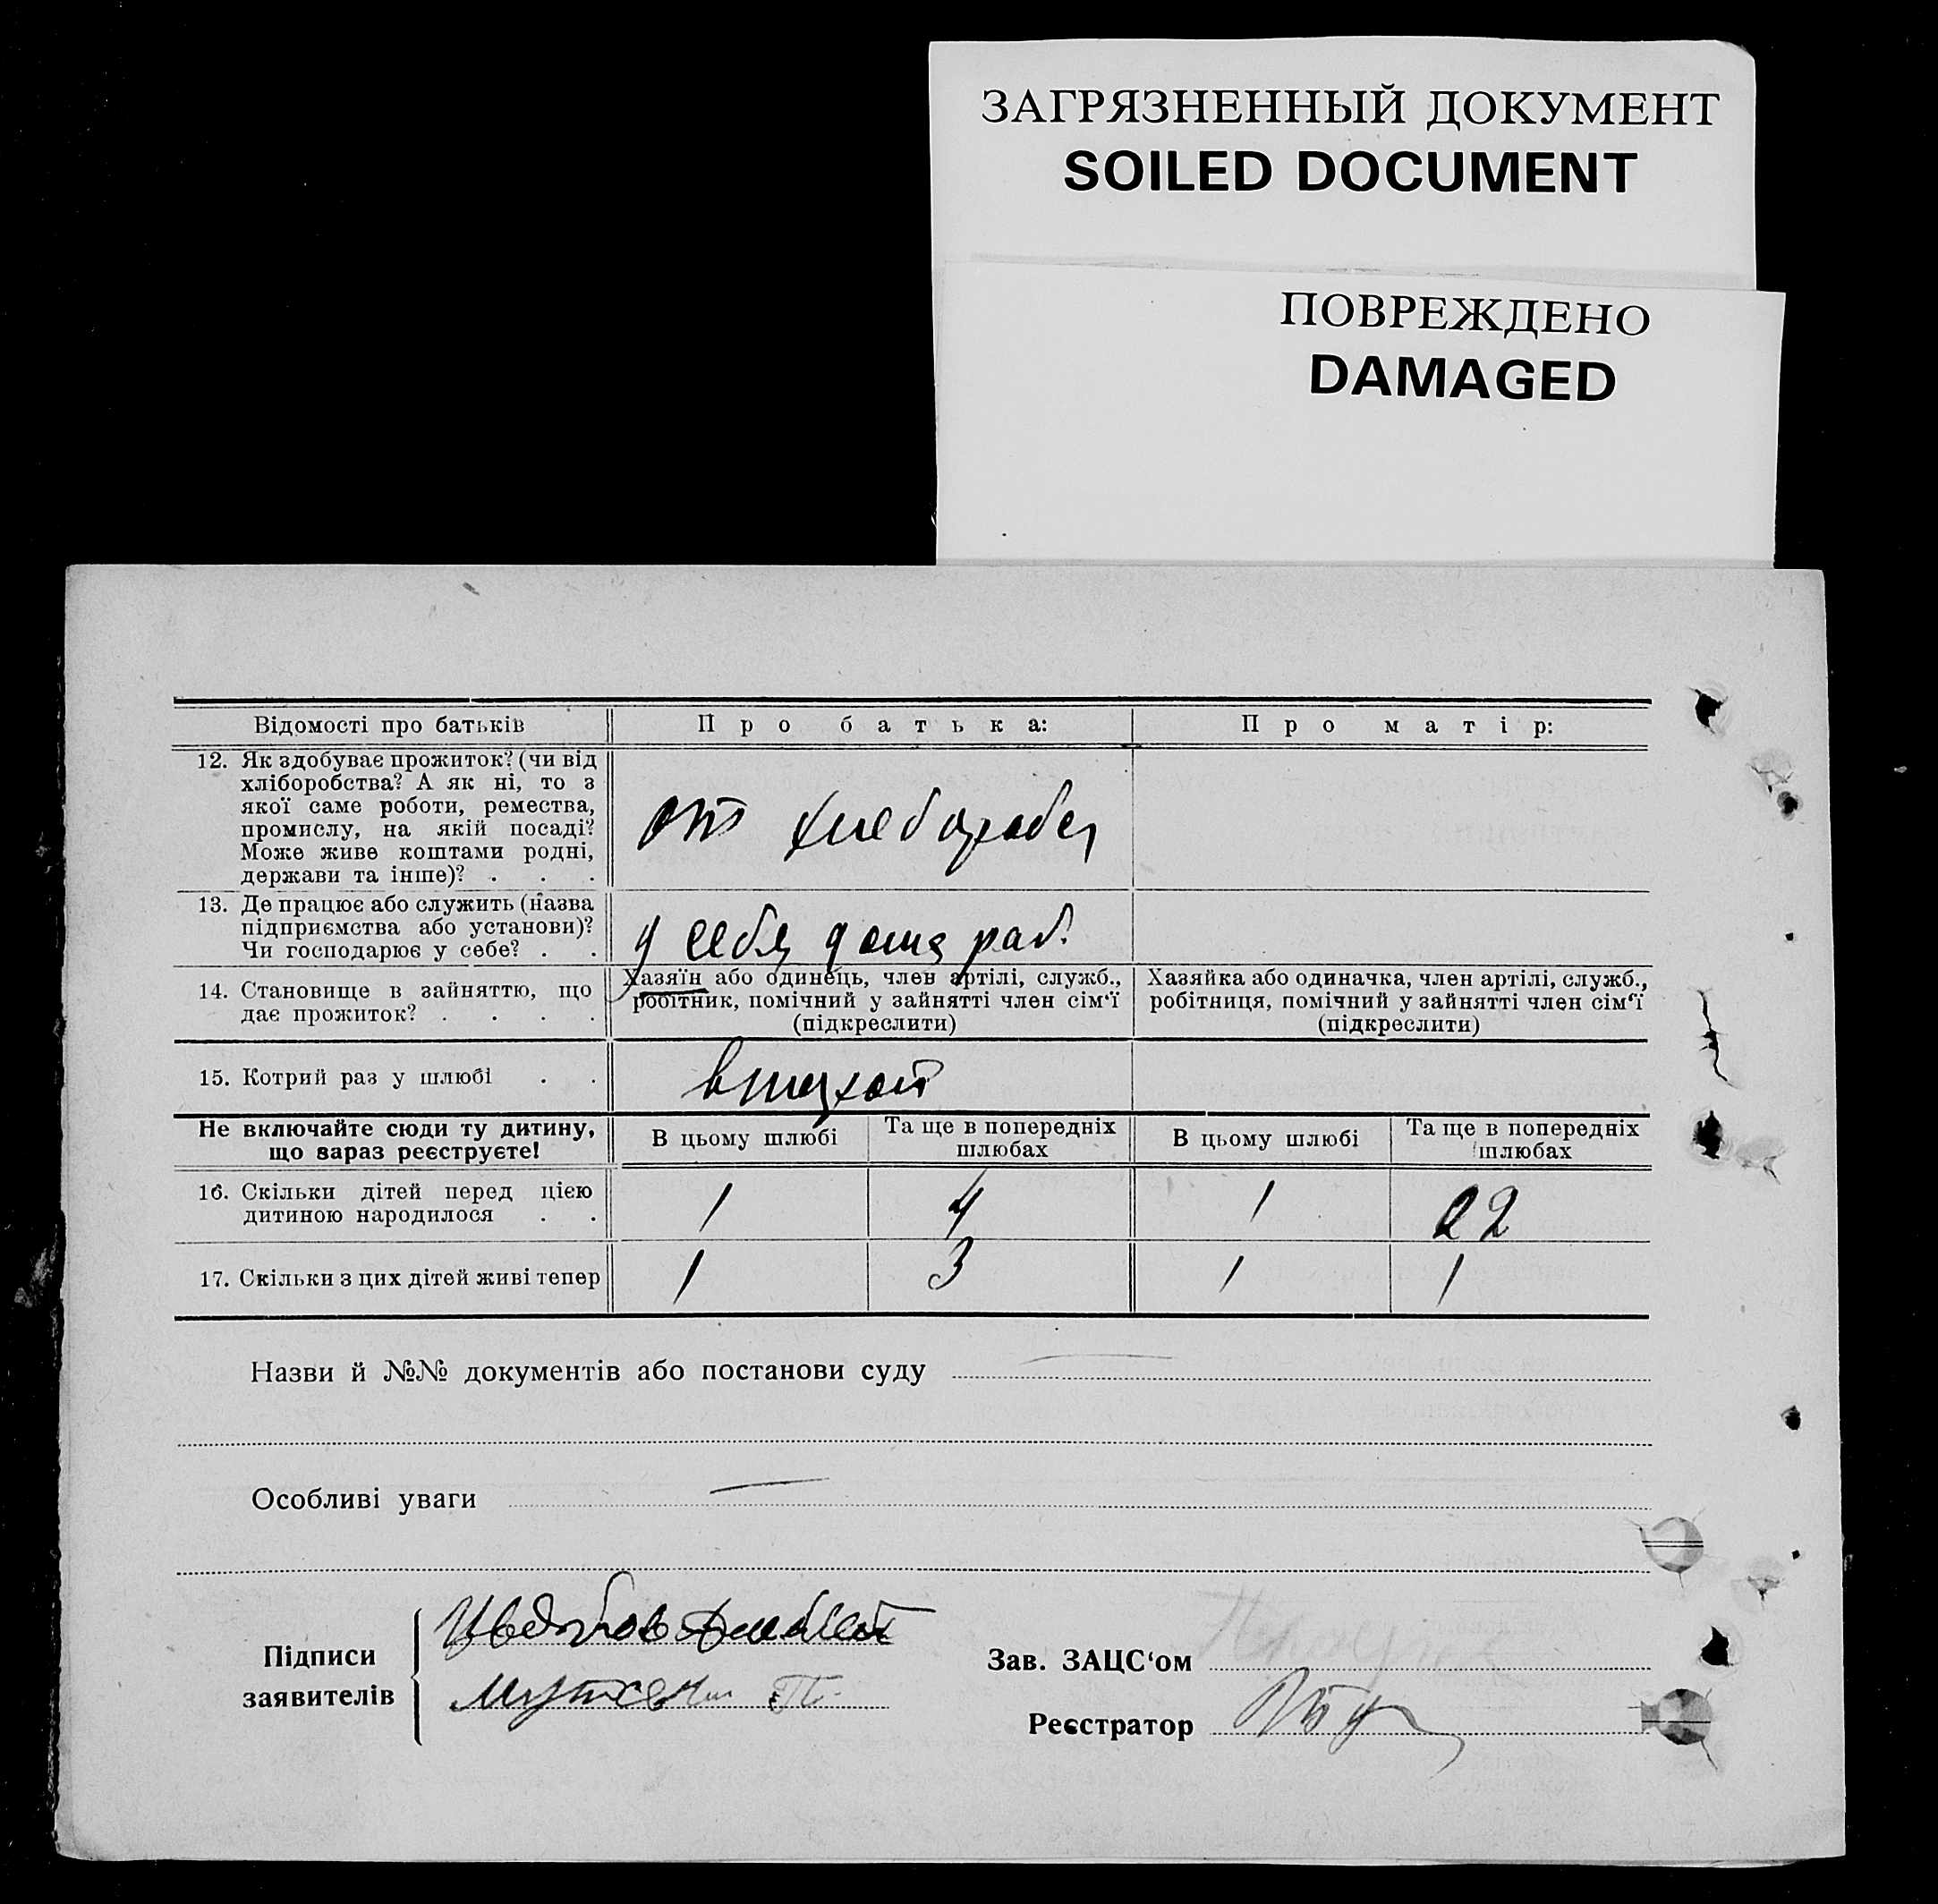 ЗАГРЯЗНЕННЫЙ ДОКУМЕНТ
SOILED DOCUMENT
ПОВРЕЖДЕНО
DAMAGED
Відомості про батьків
Про батька:
Про матір:
12. Як здобуває прожиток? (чи від
хліборобства? А як ні, то з
якої саме роботи, ремества,
промислу, на якій посаді?
Може живе коштами родні,
держави та інше)? . . .
от
13. Де працює або служить (назва
підприємства або установи)?
Чи господарює у себе? . .
у себя дома раб.
14. Становище в зайняттю, що
дає прожиток? . . . .
Хазяїн або одинець, член артілі, служб.,
робітник, помічний у зайнятті член сім'ї
(підкреслити)
Хазяйка або одиначка, член артілі, служб.,
робітниця, помічний у зайнятті член сім'ї
(підкреслити)
15. Котрий раз у шлюбі . .
Не включайте сюди ту дитину,
що зараз реєструєте!
В цьому шлюбі
Та ще в попередніх
шлюбах
В цьому шлюбі
Та ще в попередніх
шлюбах
16. Скільки дітей перед цією
дитиною народилося . .
1
4
1
2
17. Скільки з цих дітей живі тепер
1
3
1
1
Назви й №№ документів або постанови суду —
Особливі уваги —
Підписи
заявителів
Зав. ЗАЦС'ом
Реєстратор